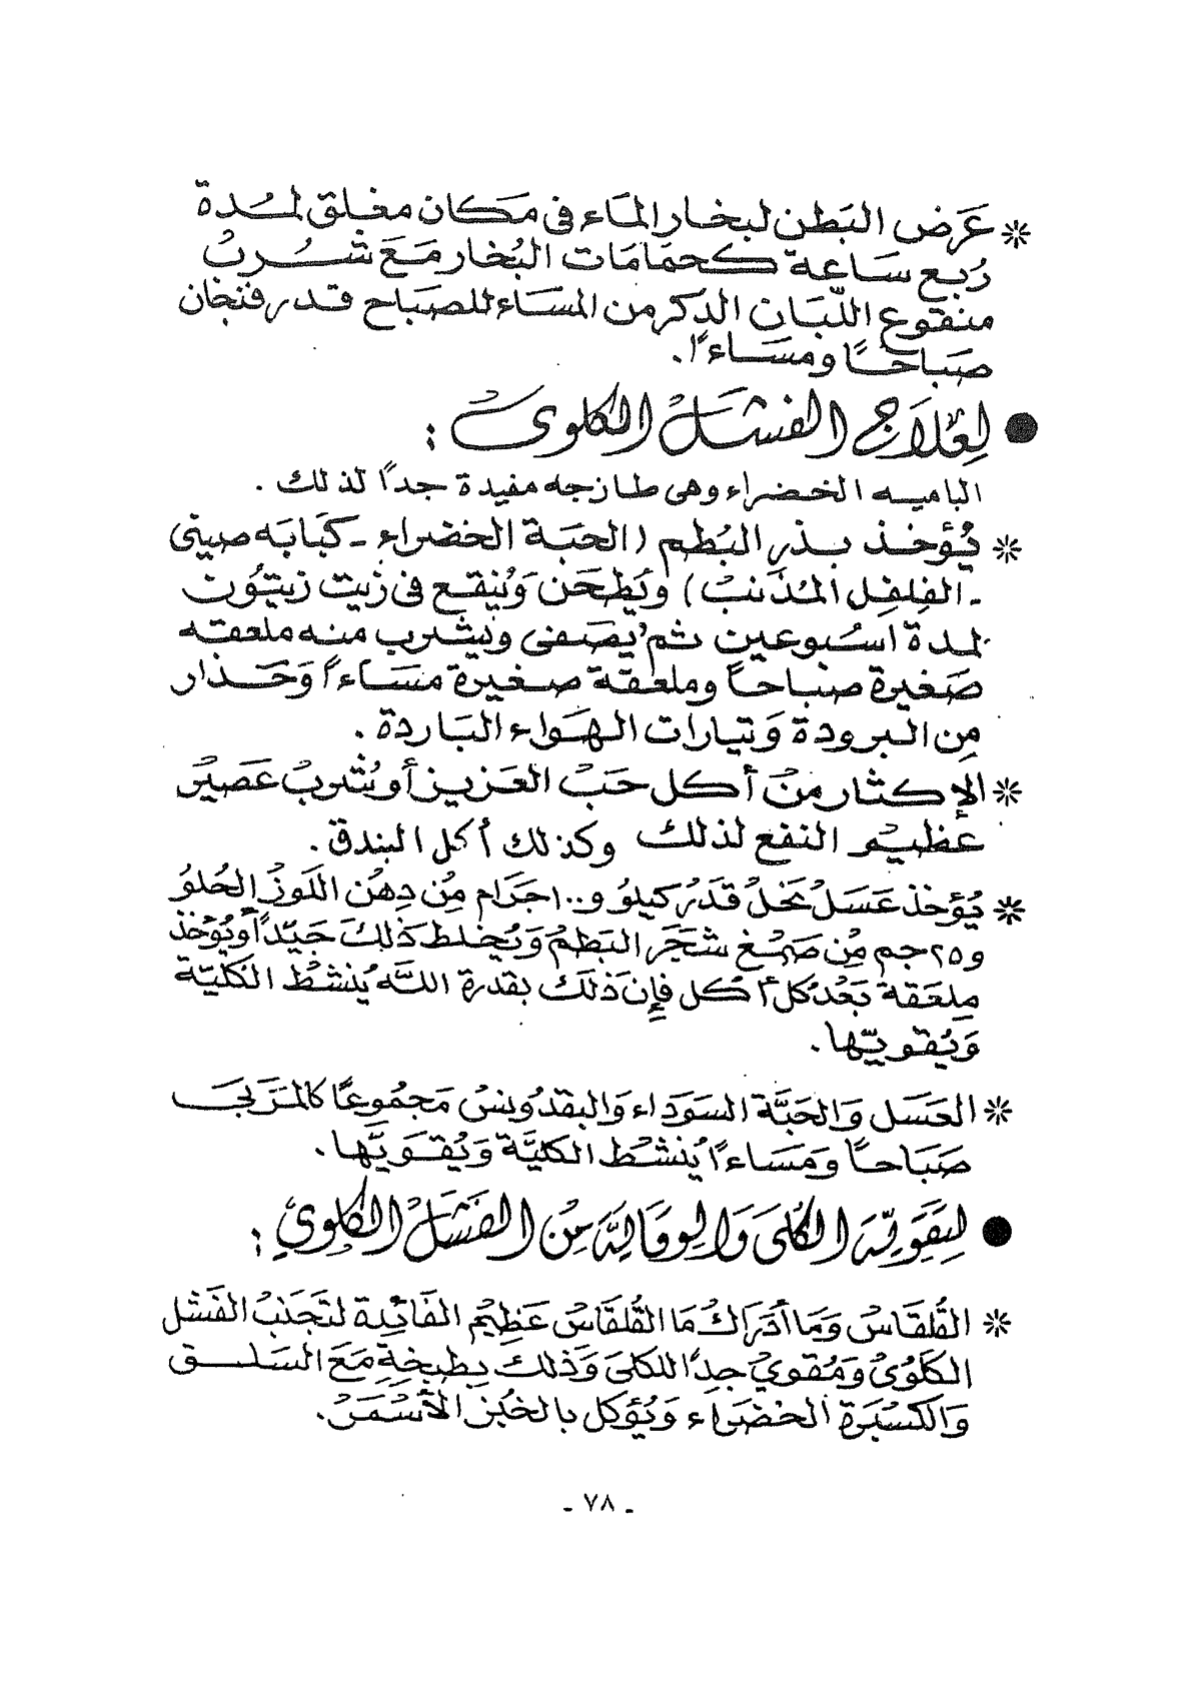 * عَرَض البَطن لبخار المَاء فى مَكان مغلق لمُدة
رُبع سَاعة كحمَامَات البُخار مَعَ شُربْ
منقوع اللّبَان الذكر من المسَاء للصبَاح قدر فنجان
صَبَاحًا ومسَاءًا.
● لِعلَاج الفشَلْ الكلوىْ :
الباميه الخضراء وهى طازجه مفيدة جداً لذلك .
* يُؤخذ بذر البُطم (الحبَة الخضراء - كبَابَه صينى
- الفِلفِل المُذَنبْ) ويُطحَن وَيُنقع فى زَيت زيتُون
لمدة أسُبوعين ثم يُصَفى ويشرب منه ملعقه
صَغيرة صَباحاً وملعَقة صغيرة مسَاءاً وَحَذار
مِن البرودة وَتيارات الهَواء البَاردة .
* الإكثار منْ أكل حَبْ العَزيز أو شُربْ عَصيرْ
عظيم النفع لذلك وكذلك أكل البندق .
* يُؤخذ عَسَلْ نحَلْ قدَرُ كيلوُ و١٠٠ جَرَام مِن دِهُن اللَوزْ الحُلوُ
و٢٥ جم مِن صَمْغ شجَر البَطمْ وَيُخلط ذَلِكَ جَيّداً وَيُؤْخذ
مِلعَقة بَعْد كل أكل فإِن ذَلَك بقدرة اللَّه يُنشطْ الكليّة
وَيُقويّها.
* العَسَل وَالحَبَّة السَودَاء وَالبقدُونسْ مَجمُوعًا كالمَرَبىَ
صَبَاحاً وَمَسَاءًا يُنشْط الكليَّة وَيُقوَيَّها.
● لِتقَوِيَة الكُلىَ وَالوِقَايَة مِنْ الفَشَلْ الكلوِي :
* القُلقَاسْ وَمَا أدَرَاكْ مَا القُلقَاسْ عَظِيمْ الفَائِدة لتَجَنبْ الفَشل
الكلَوُىْ وَمُقوىْ جداً للكلىَ وَذلك بِطبخِةِ مَعَ السَلق
وَالكسْبَرة الخضَراء وَيُؤكل بالخُبْز الأسْمَرْ.
- ٧٨ -